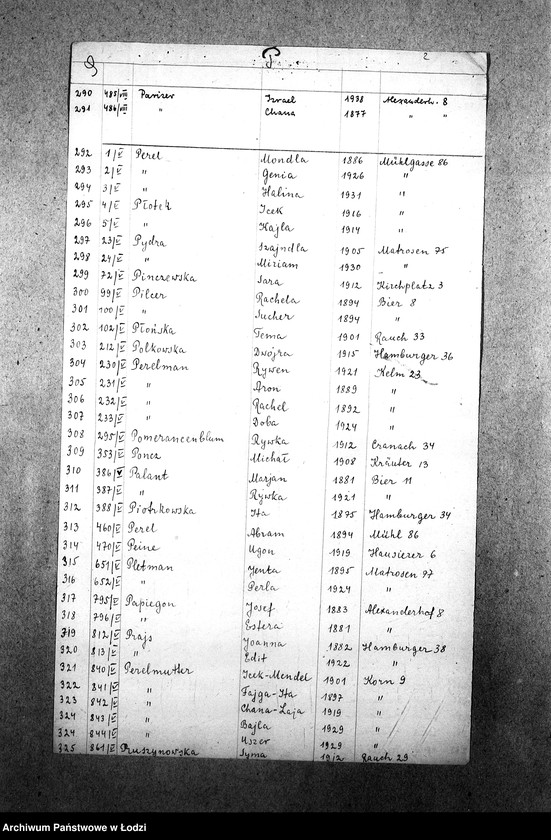 P. 2
290 485/VIII Parizer Izrael 1938 Alexanderh. 8
291 486/VIII " Chana 1877 " "
292 1/IX Perel Mondla 1886 Mühlgasse 86
293 2/IX " Genia 1926 "
294 3/IX " Halina 1931 "
295 4/IX Płotek Icek 1916 "
296 5/IX " Kajla 1914 "
297 23/IX Pydra Szajndla 1905 Matrosen 75
298 24/IX " Miriam 1930 "
299 72/IX Pinczewska Sara 1912 Kirchplatz 3
300 99/IX Pilcer Rachela 1894 Bier 8
301 100/IX " Sucher 1894 "
302 102/IX Płońska Tema 1901 Rauch 33
303 212/IX Polkowska Dwojra 1915 Hamburger 36
304 230/IX Perelman Rywen 1921 Kelm 23
305 231/IX " Aron 1889 "
306 232/IX " Rachel 1892 "
307 233/IX " Doba 1924 "
308 295/IX Pomerancenblum Rywka 1912 Cranach 34
309 353/IX Poncz Michał 1908 Kräuter 13
310 386/ Palant Marjan 1881 Bier 11
311 387/IX " Rywka 1921 "
312 388/IX Piotrkowska Ita 1875 Hamburger 34
313 460/IX Perel Abram 1894 Mühl 86
314 470/IX Peine Ugon 1919 Hausierer 6
315 651/IX Pletman Jenta 1895 Matrosen 97
316 652/IX " Perla 1924 "
317 795/IX Papiegon Josef 1883 Alexanderhof 8
318 796/IX " Estera 1881 "
319 812/IX Prajs Joanna 1882 Hamburger 38
320 813/IX " Edit 1922 "
321 840/IX Perelmutter Icek-Mendel 1901 Korn 9
322 841/IX " Fajga-Ita 1897 "
323 842/IX " Chana-Łaja 1919 "
324 843/IX " Bajla 1929 "
324 844/IX " Uszer 1929 "
325 861/IX Pruszynowska Syma 1912 Rauch 29
Archiwum Państwowe w Łodzi